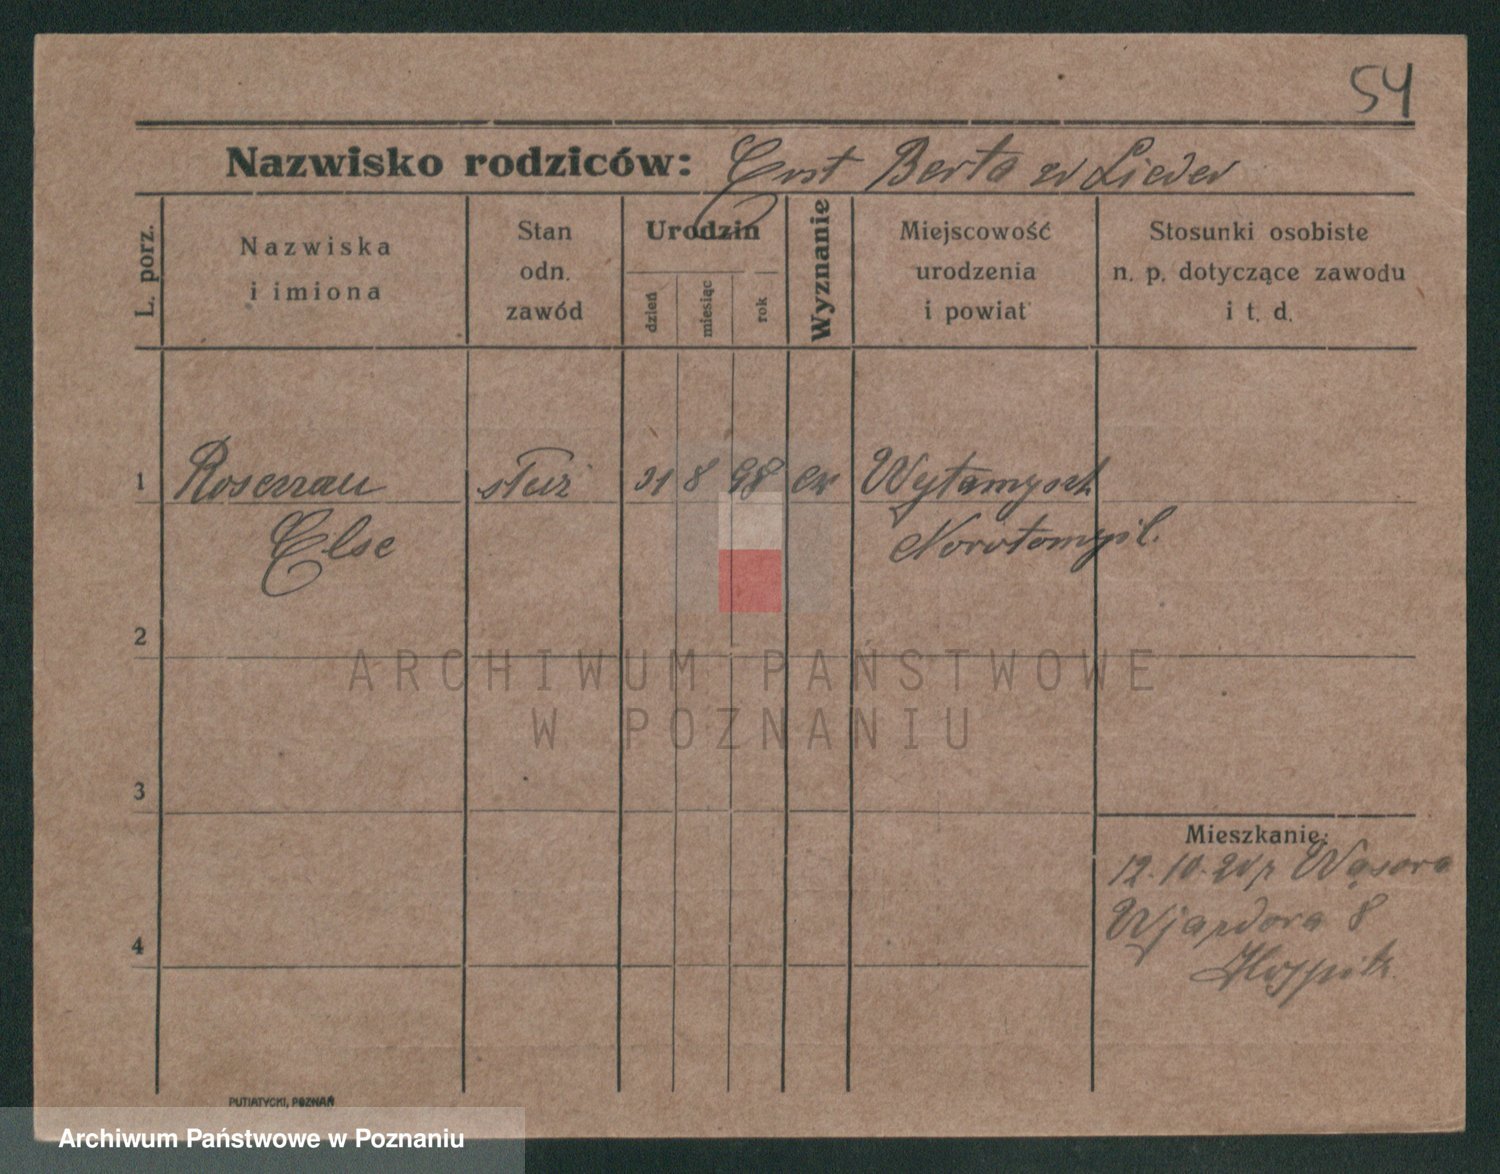 54
Nazwisko rodziców: Ernst Berta z Lieder
L. porz.
Nazwiska
i imiona
Stan
odn.
zawód
Urodzin
dzień
miesiąc
rok
Wyznanie
Miejscowość
urodzenia
i powiat
Stosunki osobiste
n. p. dotyczące zawodu
i t. d.
1 Rosenau służ 31 8 98 ew Wytomysch
Else Nowotomyśl.
2
ARCHIWUM PAŃSTWOWE
W POZNANIU
3
Mieszkanie:
12.10.20
Wjazdowa 8
4
PUTIATYCKI, POZNAŃ
Archiwum Państwowe w Poznaniu